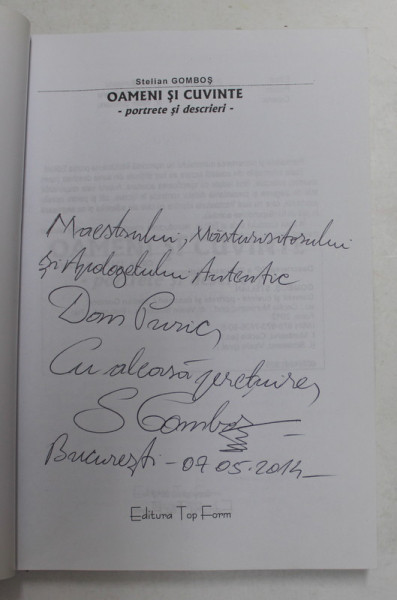 Stelian GOMBOȘ
OAMENI ȘI CUVINTE
- portrete și descrieri -
Maestrului, Mărturisitorului
și Apologetului Autentic
Dan Puric,
Cu aleasă prețuire,
S Gomboș
București - 07.05.2014
Editura Top Form